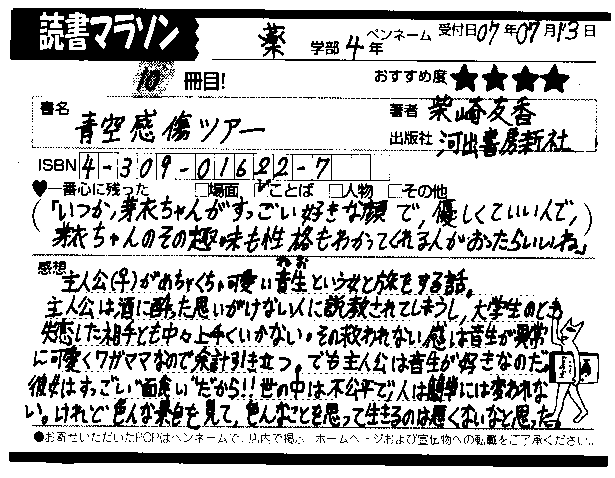 読書マラソン
薬 学部 4 年 ペンネーム 受付日 07 年 07 月 13 日
10 冊目! おすすめ度 ★★★★
書名 青空感傷ツアー 著者 柴崎友香
出版社 河出書房新社
ISBN 4-309-01622-7
♥一番心に残った □場面 ☑ことば □人物 □その他
(「いつか、芽衣ちゃんがすっごい好きな顔で、優しくていい人で、
芽衣ちゃんのその趣味も性格もわかってくれる人がおったらいいね」)
感想 主人公(♀)がめちゃくちゃ可愛い音生(ねお)という女と旅をする話。
主人公は酒に酔った思いがけない人に説教されてしまうし、大学生のとき
失恋した相手とも中々上手くいかない。その救われない感は音生が異常
に可愛くワガママなので余計引き立つ。でも主人公は音生が好きなのだ。
彼女はすっごい"面食い"だから!!世の中は不公平で人は簡単には変われな
い。けれど色んな景色を見て、色んなことを思って生きるのは悪くないなと思った。
●お寄せいただいたPOPはペンネームで、店内で掲示、ホームページおよび宣伝物への転載をご了承ください。